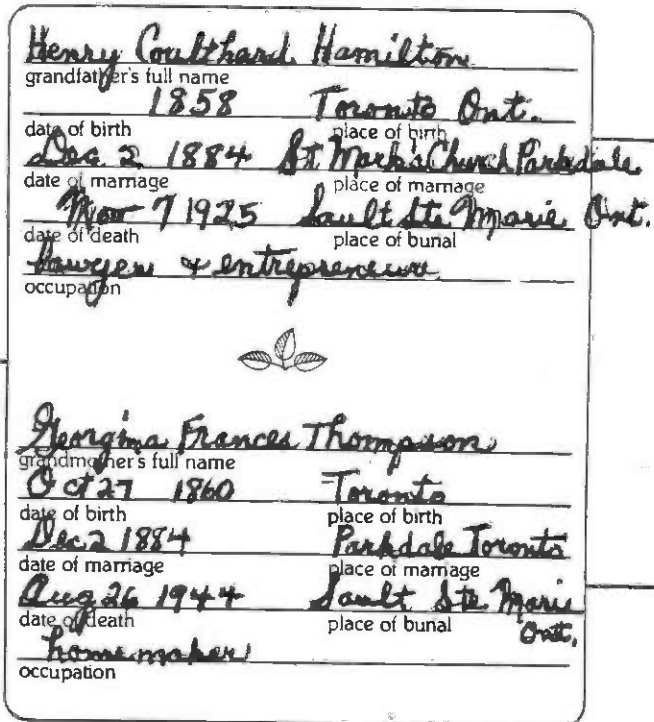 Henry Coulthard Hamilton
grandfather's full name
1858 Toronto Ont.
date of birth place of birth
Dec 2 1884 St Mark's Church Parkdale
date of marriage place of marriage
Nov 7 1925 Sault Ste Marie Ont.
date of death place of burial
lawyer & entrepreneur
occupation
Georgina Frances Thompson
grandmother's full name
Oct 27 1860 Toronto
date of birth place of birth
Dec 2 1884 Parkdale Toronto
date of marriage place of marriage
Aug 26 1944 Sault Ste Marie
date of death place of burial Ont.
homemaker
occupation